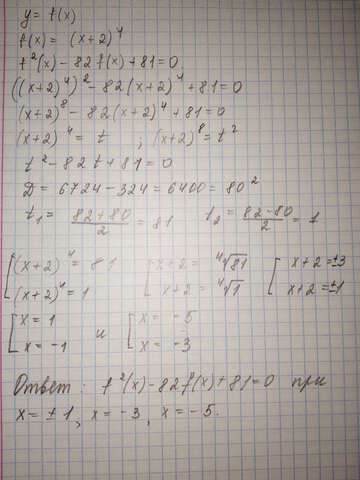 y = f(x)
f(x) = (x+2)⁴
f²(x) - 82f(x) + 81 = 0.
((x+2)⁴)² - 82(x+2)⁴ + 81 = 0
(x+2)⁸ - 82(x+2)⁴ + 81 = 0
(x+2)⁴ = t ; (x+2)⁸ = t²
t² - 82t + 81 = 0
D = 6724 - 324 = 6400 = 80²
t₁ = (82+80)/2 = 81 t₂ = (82-80)/2 = 1
[(x+2)⁴ = 81 [x+2 = ⁴√81 [x+2 = ±3
[(x+2)⁴ = 1 [x+2 = ⁴√1 [x+2 = ±1
[x = 1 и [x = -5
[x = -1 [x = -3
Ответ: f²(x) - 82f(x) + 81 = 0 при
x = ±1, x = -3, x = -5.